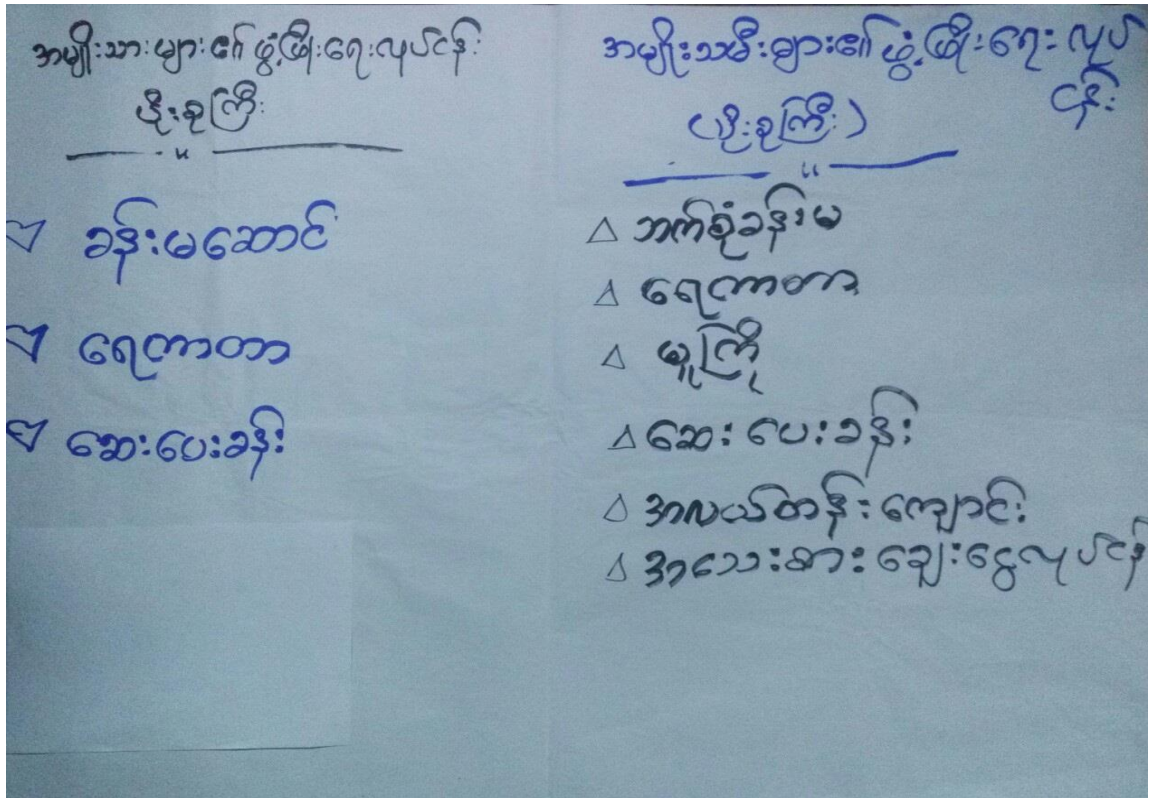 အမျိုးသားများ၏ဖွံ့ဖြိုးရေးလုပ်ငန်း
ဖိုးစုကြီး
ခန်းမဆောင်
ရေကာတာ
ဆေးပေးခန်း
အမျိုးသမီးများ၏ဖွံ့ဖြိုးရေးလုပ်
ငန်း
(ဖိုးစုကြီး)
ဘက်စုံခန်းမ
ရေကာတာ
မူကြို
ဆေးပေးခန်း
အလယ်တန်းကျောင်း
အသေးစားချေးငွေလုပ်ငန်